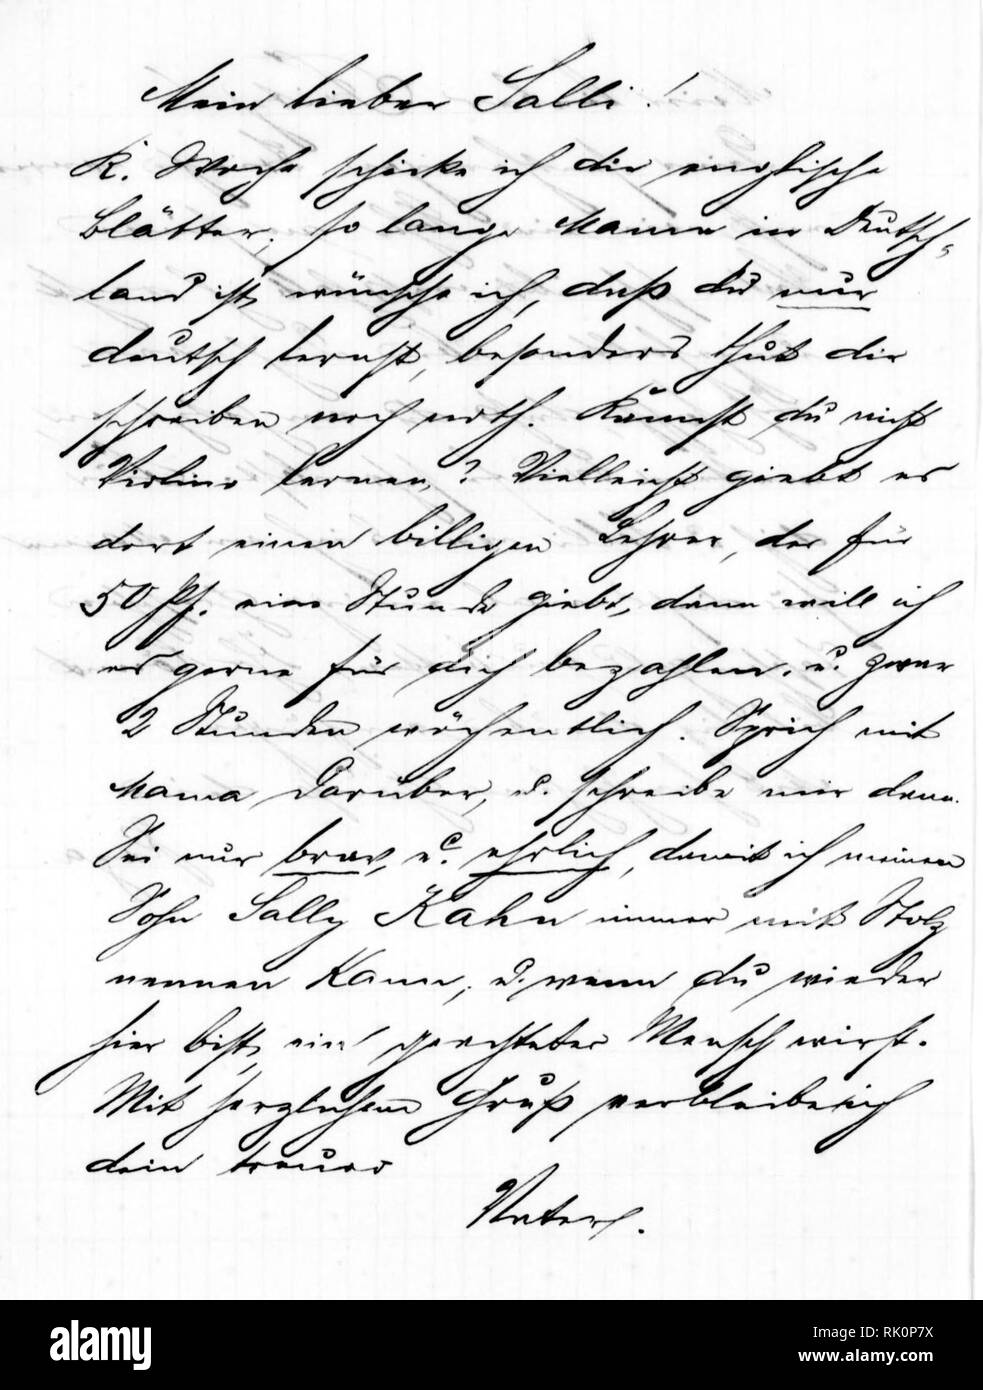 Mein lieber Salli!
K. Woche schicke ich dir englische
Blätter, so lange Mama in Deutsch-
land ist, wünsche ich, daß du nur
deutsch lernst, besonders thut dir
schreiben noch noth. Kannst du nicht
Violine lernen,? Vielleicht giebt es
dort einen billigen Lehrer, der für
50 Pf. eine Stunde giebt, dann will ich
es gerne für dich bezahlen, u. zwar
2 Stunden wöchentlich. Sprich mit
Mama darüber, u. schreibe mir dann.
Sei nur brav, u. ehrlich, damit ich meinen
Sohn Sally Kahn immer mit Stolz
nennen Kann, u. wenn du wieder
hier bist, ein geachteter Mensch wirst.
Mit herzlichem Gruß verbleibe ich
dein treuer
Vater.
alamy
Image ID: RK0P7X
www.alamy.com